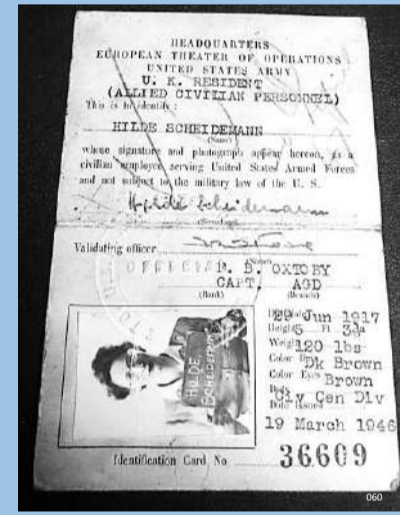 HEADQUARTERS
EUROPEAN THEATER OF OPERATIONS
UNITED STATES ARMY
U. K. RESIDENT
(ALLIED CIVILIAN PERSONNEL)
This is to identify :
HILDE SCHEIDEMANN
(Name)
whose signature and photograph appear hereon, is a
civilian employee serving United States Armed Forces
and not subject to the military law of the U. S.
Hilde Scheidemann
Validating officer
OFFICIAL R. B. OXTOBY
CAPT. AGD
(Rank) (Branch)
29 Jun 1917
Height 5 Ft 3¾
Weight 120 lbs
Color Dk Brown
Color Eyes Brown
Civ Cen Div
Date Issued
19 March 1946
HILDE
SCHEIDEMANN
Identification Card No 36609
060